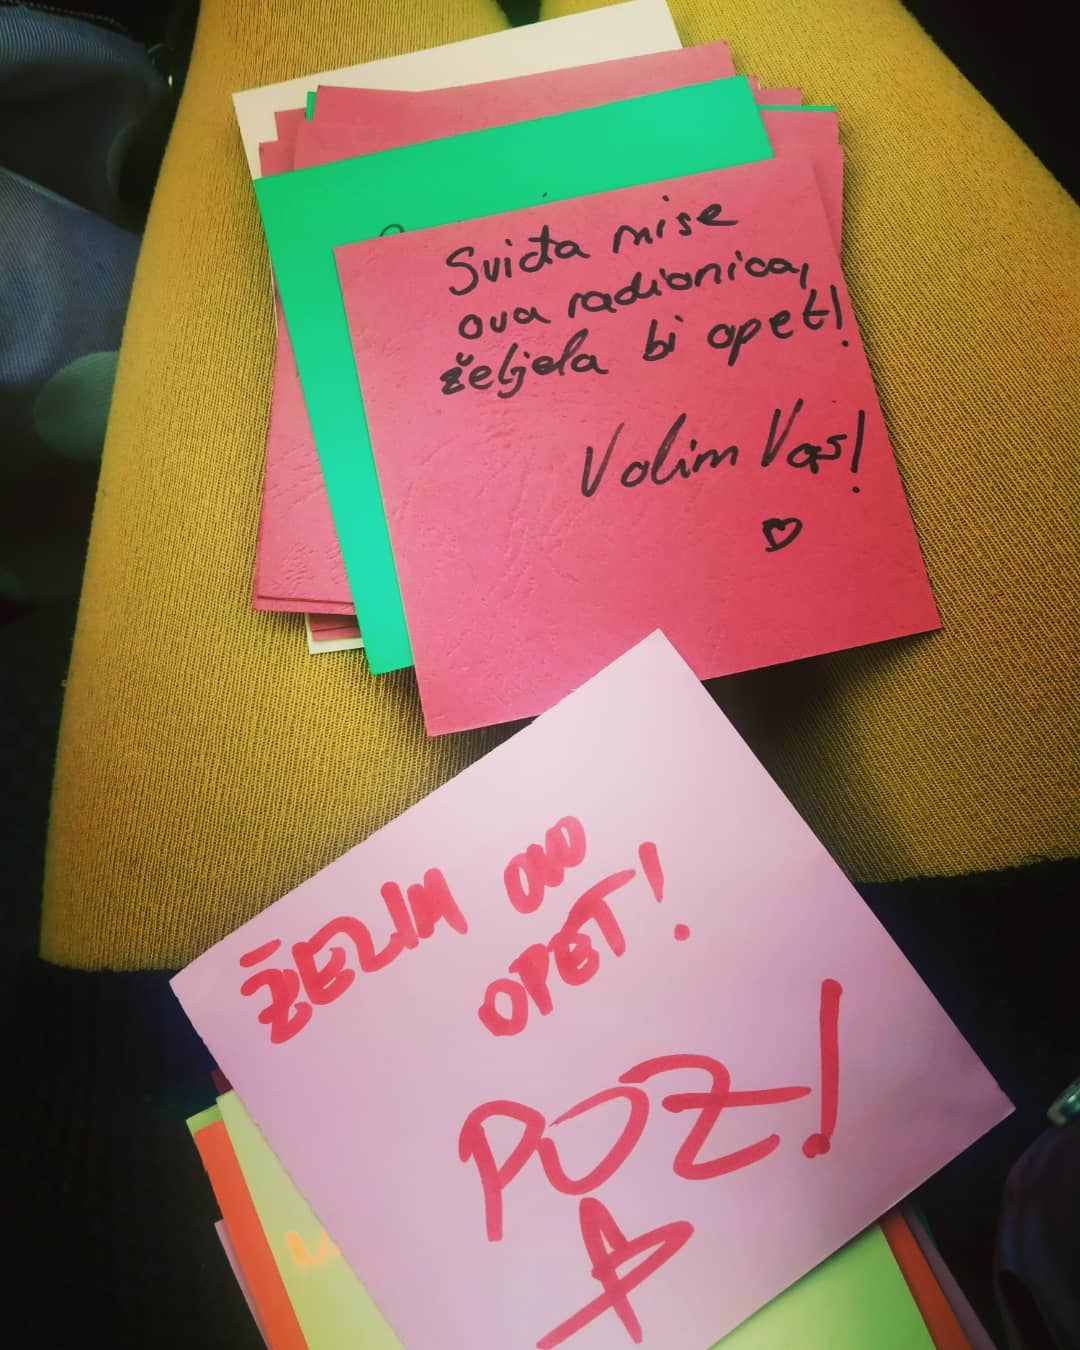 Sviđa mi se
ova radionica,
željela bi opet!
Volim Vas!
♡
ŽELIM OVO
OPET!
POZ!